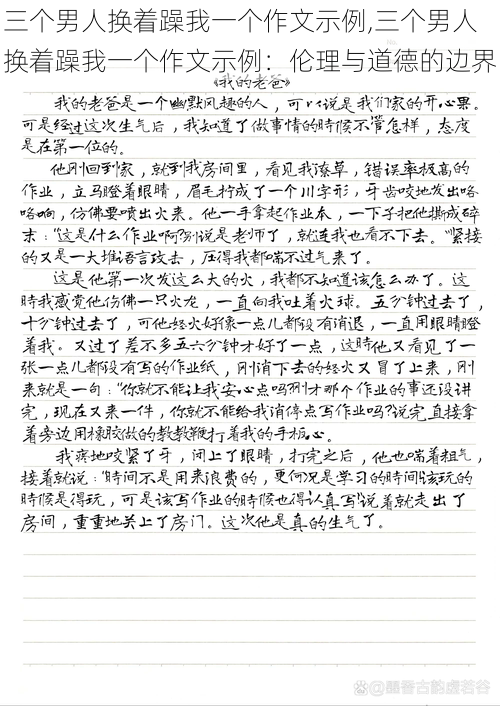 三个男人换着躁我一个作文示例,三个男人
换着躁我一个作文示例：伦理与道德的边界
《我的老爸》
我的老爸是一个幽默风趣的人，可以说是我们家的开心果。
可是经过这次生气后，我知道了做事情的時候不管怎样，态度
是在第一位的。
他刚回到家，就到我房间里，看见我潦草，错误率极高的
作业，立马瞪着眼睛，眉毛拧成了一个川字形，牙齿咬地发出咯
咯响，仿佛要喷出火来。他一手拿起作业本，一下子把他撕成碎
末："这是什么作业啊?别说是老师了，就连我也看不下去。"紧接
的又是一大堆语言攻击，压得我都喘不过气来了。
这是他第一次发这么大的火，我都不知道该怎么办了。这
時我感觉他仿佛一只火龙，一直向我吐着火球。五分钟过去了，
十分钟过去了，可他怒火好像一点儿都没有消退，一直用眼睛瞪
着我。又过了差不多五六分钟才好了一点，这時他又看见了一
张一点儿都没有写的作业纸，刚消下去的怒火又冒了上来，刚
来就是一句："你就不能让我安心点吗?刚才那个作业的事还没讲
完，现在又来一件，你就不能给我消停点写作业吗?"说完直接拿
着旁边用橡胶做的教教鞭打着我的手板心。
我疼地咬紧了牙，闭上了眼睛，打完之后，他也喘着粗气，
接着就说："時间不是用来浪费的，更何况是学习的時间!该玩的
時候是得玩，可是该写作业的時候也得认真写!"说着就走出了
房间，重重地关上了房门。这次他是真的生气了。